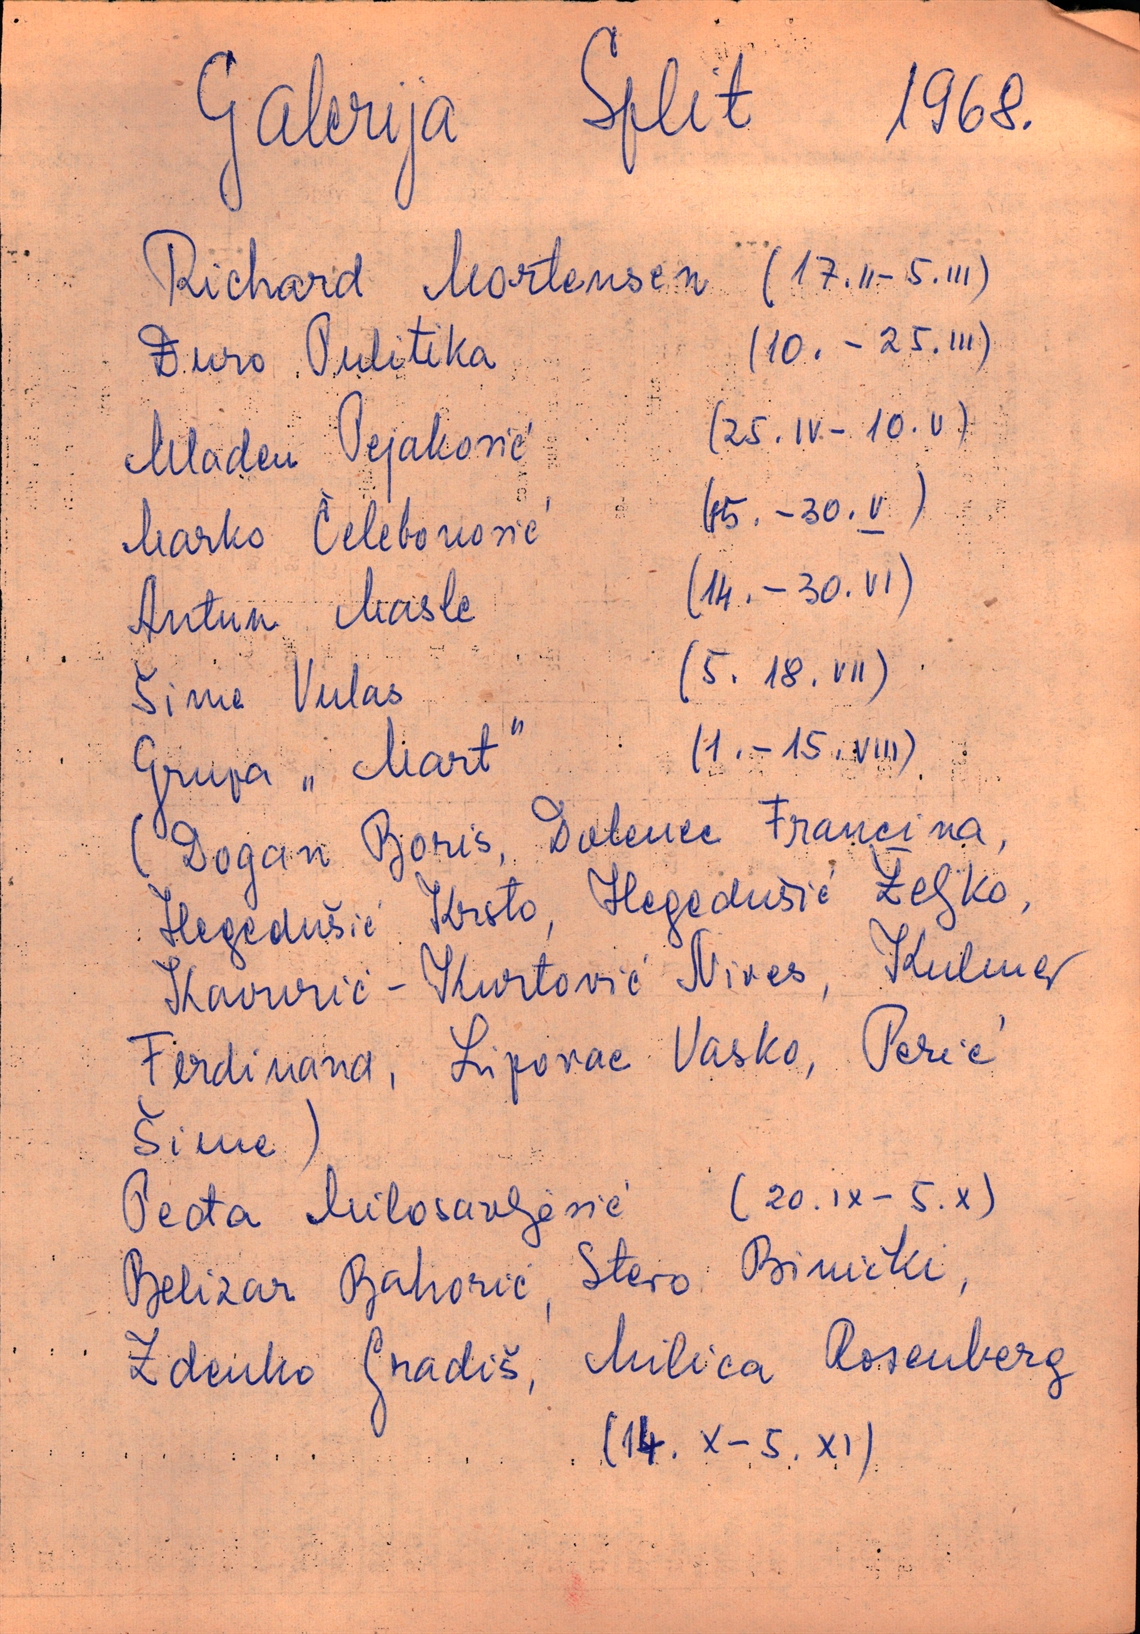 Galerija Split 1968.
Richard Mortensen (17.II-5.III)
Đuro Pulitika (10.-25.III)
Mladen Pejaković (25.IV-10.V)
Marko Čelebonović (15.-30.V)
Antun Masle (14.-30.VI)
Šime Vulas (5. 18.VII)
Grupa „Mart" (1.-15.VIII)
(Dogan Boris, Dolenec Francina,
Hegedušić Krsto, Hegedušić Željko,
Kavurić-Kurtović Nives, Kulmer
Ferdinand, Lipovac Vasko, Perić
Šime)
Peđa Milosavljević (20.IX-5.X)
Belizar Bahorić, Stevo Binički,
Zdenko Gradiš, Milica Rosenberg
(14.X-5.XI)